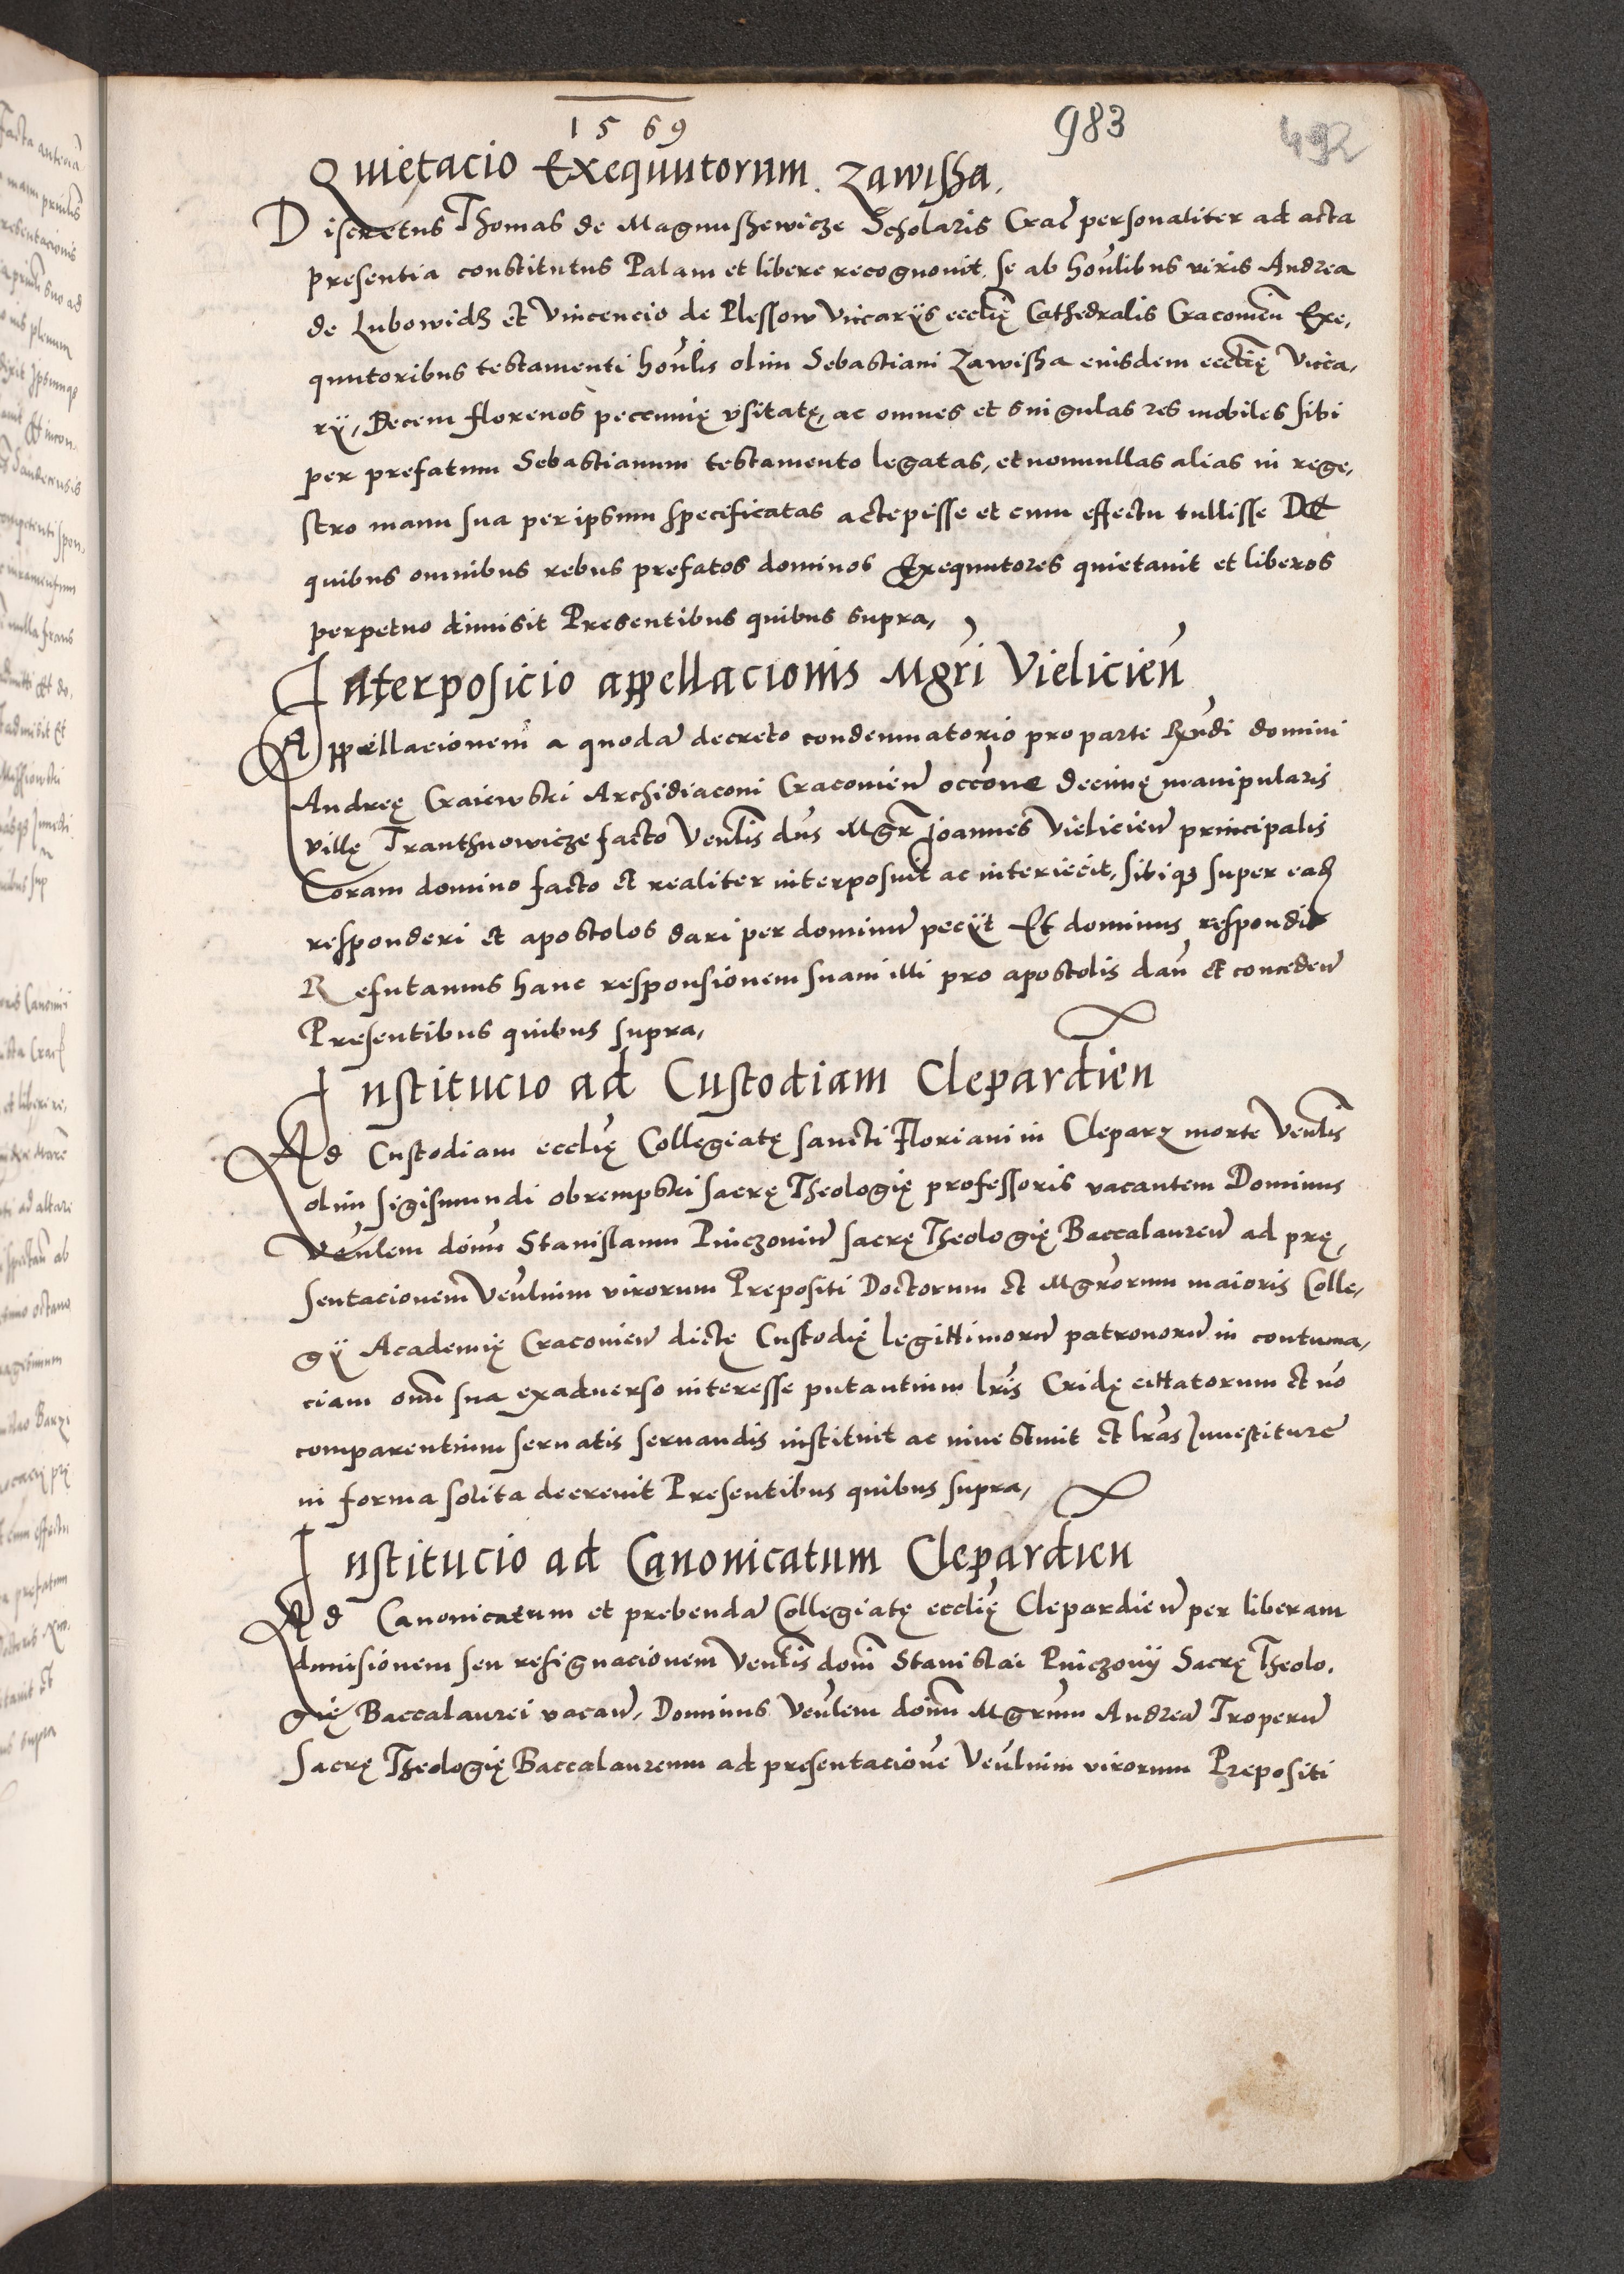 1569
983
492
Quietacio Exequutorum Zawissza.
Discretus Thomas de Magnusshewicze Scholaris Crac̃ personaliter ad acta
presentia constitutus Palam et libere recognouit, se ab hon̄libus viris Andrea
de Lubowidz et Vincencio de Plessow Vicarÿs eccl̃ię Cathedralis Cracouien̄ Exe,
quutoribus testamenti hon̄lis olim Sebastiani Zawissza eiusdem eccl̃ię Vica,
rÿ, Decem florenos peccunię vsitatę, ac omnes et singulas res mobiles sibi
per prefatum Sebastianum testamento legatas, et nonnullas alias in rege,
stro manu sua per ipsum specificatas accepisse et cum effectu tullisse De
quibus omnibus rebus prefatos dominos Exequutores quietauit et liberos
perpetuo dimisit Presentibus quibus supra,
Interposicio appellacionis Mgr̃i Vielicien̄
Appellacionem a quodā decreto condemnatorio pro parte Rn̄di domini
Andreę Craiewski Archidiaconi Cracouien̄ occ̃one decimę manipularis
villę Tranthnowicze facto Ven̄lis dn̄s Mgr̃ Joannes Vielicien̄ principalis
Coram domino facto et realiter interposuit ac interiecit, sibiqȝ super eadȝ
responderi et apostolos dari per dominū pecÿt Et dominus respondit
Refutamus hanc responsionem suam illi pro apostolis dan̄ et conceden̄
Presentibus quibus supra,
Institucio ad Custodiam Clepardien
Ad Custodiam eccl̃ię Collegiatę sancti Floriani in Clepar̄ morte Ven̄lis
olim sigismundi obrempski sacrę Theologię professoris vacantem Dominus
Ven̄lem dom̄ Stanislaum Pinczouiū sacrę Theologię Baccalaureū ad prę,
sentacionem Ven̄lium virorum Prepositi Doctorum et Mgr̃orum maioris Colle,
gÿ Academię Cracouien̄ dictę Custodię legittimorū patronorū in contuma,
ciam om̄ sua exaduerso interesse putantium lr̃is Cridę cittatorum et nō
comparentium seruatis seruandis instituit ac inuestiuit et lr̃as Inuestiturę
in forma solita decreuit Presentibus quibus supra,
Institucio ad Canonicatum Clepardien
Ad Canonicatum et prebendā Collegiatę eccl̃ię Clepardien̄ per liberam
dimisionem seu resignacionem Ven̄lis dom̄i Stanislai Pinczouÿ Sacrę Theolo,
gię Baccalaurei vacan̄, Dominus Ven̄lem dom̄ Mgr̃um Andreā Troperū
Sacrę Theologię Baccalaureum ad presentacionē Ven̄lium virorum Prepositi